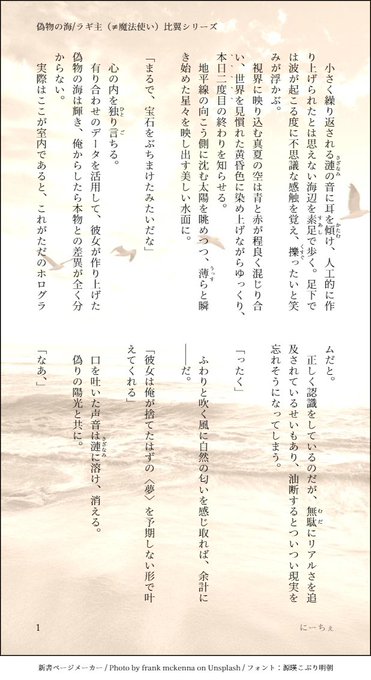 偽物の海/ラギ主（≠魔法使い）比翼シリーズ
小さく繰り返される漣の音に耳を傾け、人工的に作
り上げられたとは思えない海辺を素足で歩く。足下で
は波が起こる度に不思議な感触を覚え、擽ったいと笑
みが浮かぶ。
視界に映り込む真夏の空は青と赤が程良く混じり合
い、世界を見慣れた黄昏色に染め上げながらゆっくり、
本日二度目の終わりを知らせる。
地平線の向こう側に沈む太陽を眺めつつ、薄らと瞬
き始めた星々を映し出す美しい水面に。
「まるで、宝石をぶちまけたみたいだな」
心の内を独り言ちる。
有り合わせのデータを活用して、彼女が作り上げた
偽物の海は輝き、俺からしたら本物との差異が全く分
からない。
実際はここが室内であると、これがただのホログラ
ムだと。
正しく認識をしているのだが、無駄にリアルさを追
及されているせいもあり、油断するとついつい現実を
忘れそうになってしまう。
「ったく」
ふわりと吹く風に自然の匂いを感じ取れば、余計に
――だ。
「彼女は俺が捨てたはずの〈夢〉を予期しない形で叶
えてくれる」
口を吐いた声音は漣に溶け、消える。
偽りの陽光と共に。
「なあ、
にーちぇ
1
新書ページメーカー / Photo by frank mckenna on Unsplash / フォント：源暎こぶり明朝